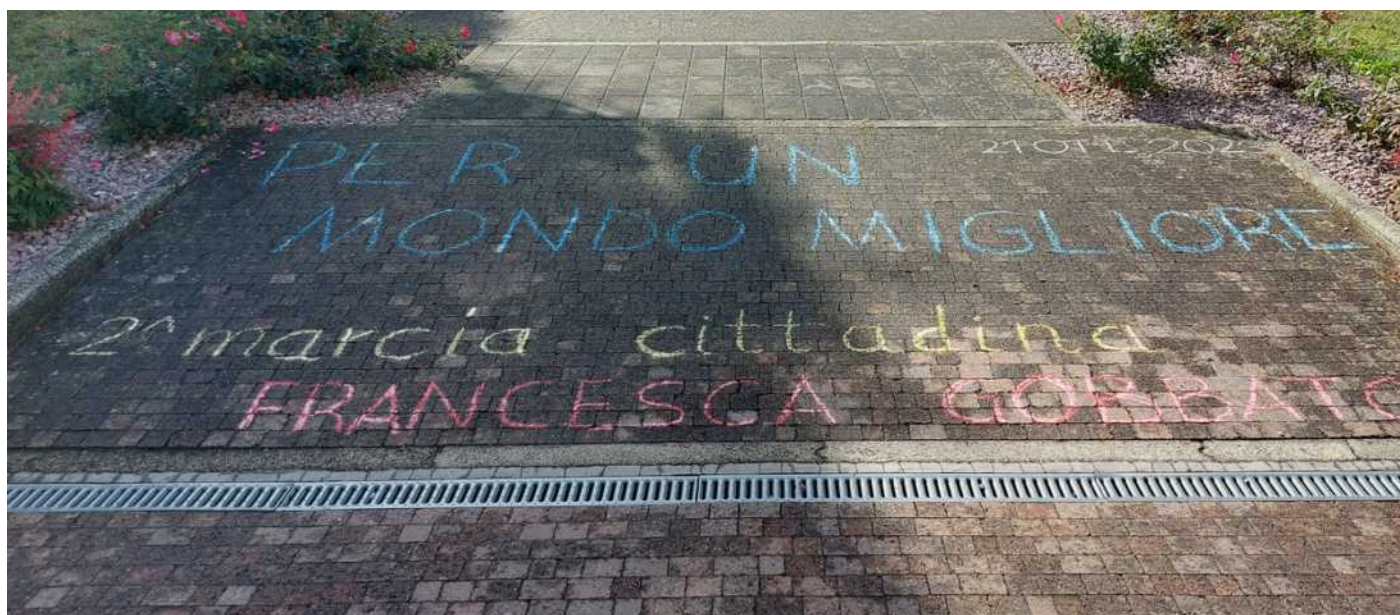 PER UN
MONDO MIGLIORE
2^ marcia cittadina
FRANCESCA GOBBATO